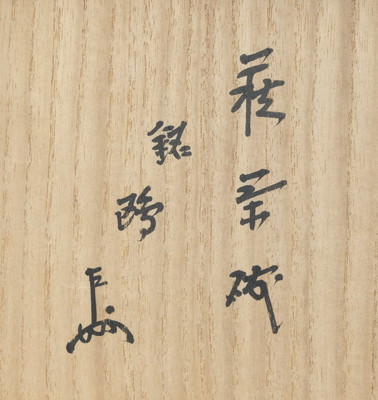 萩茶碗
銘
鴎